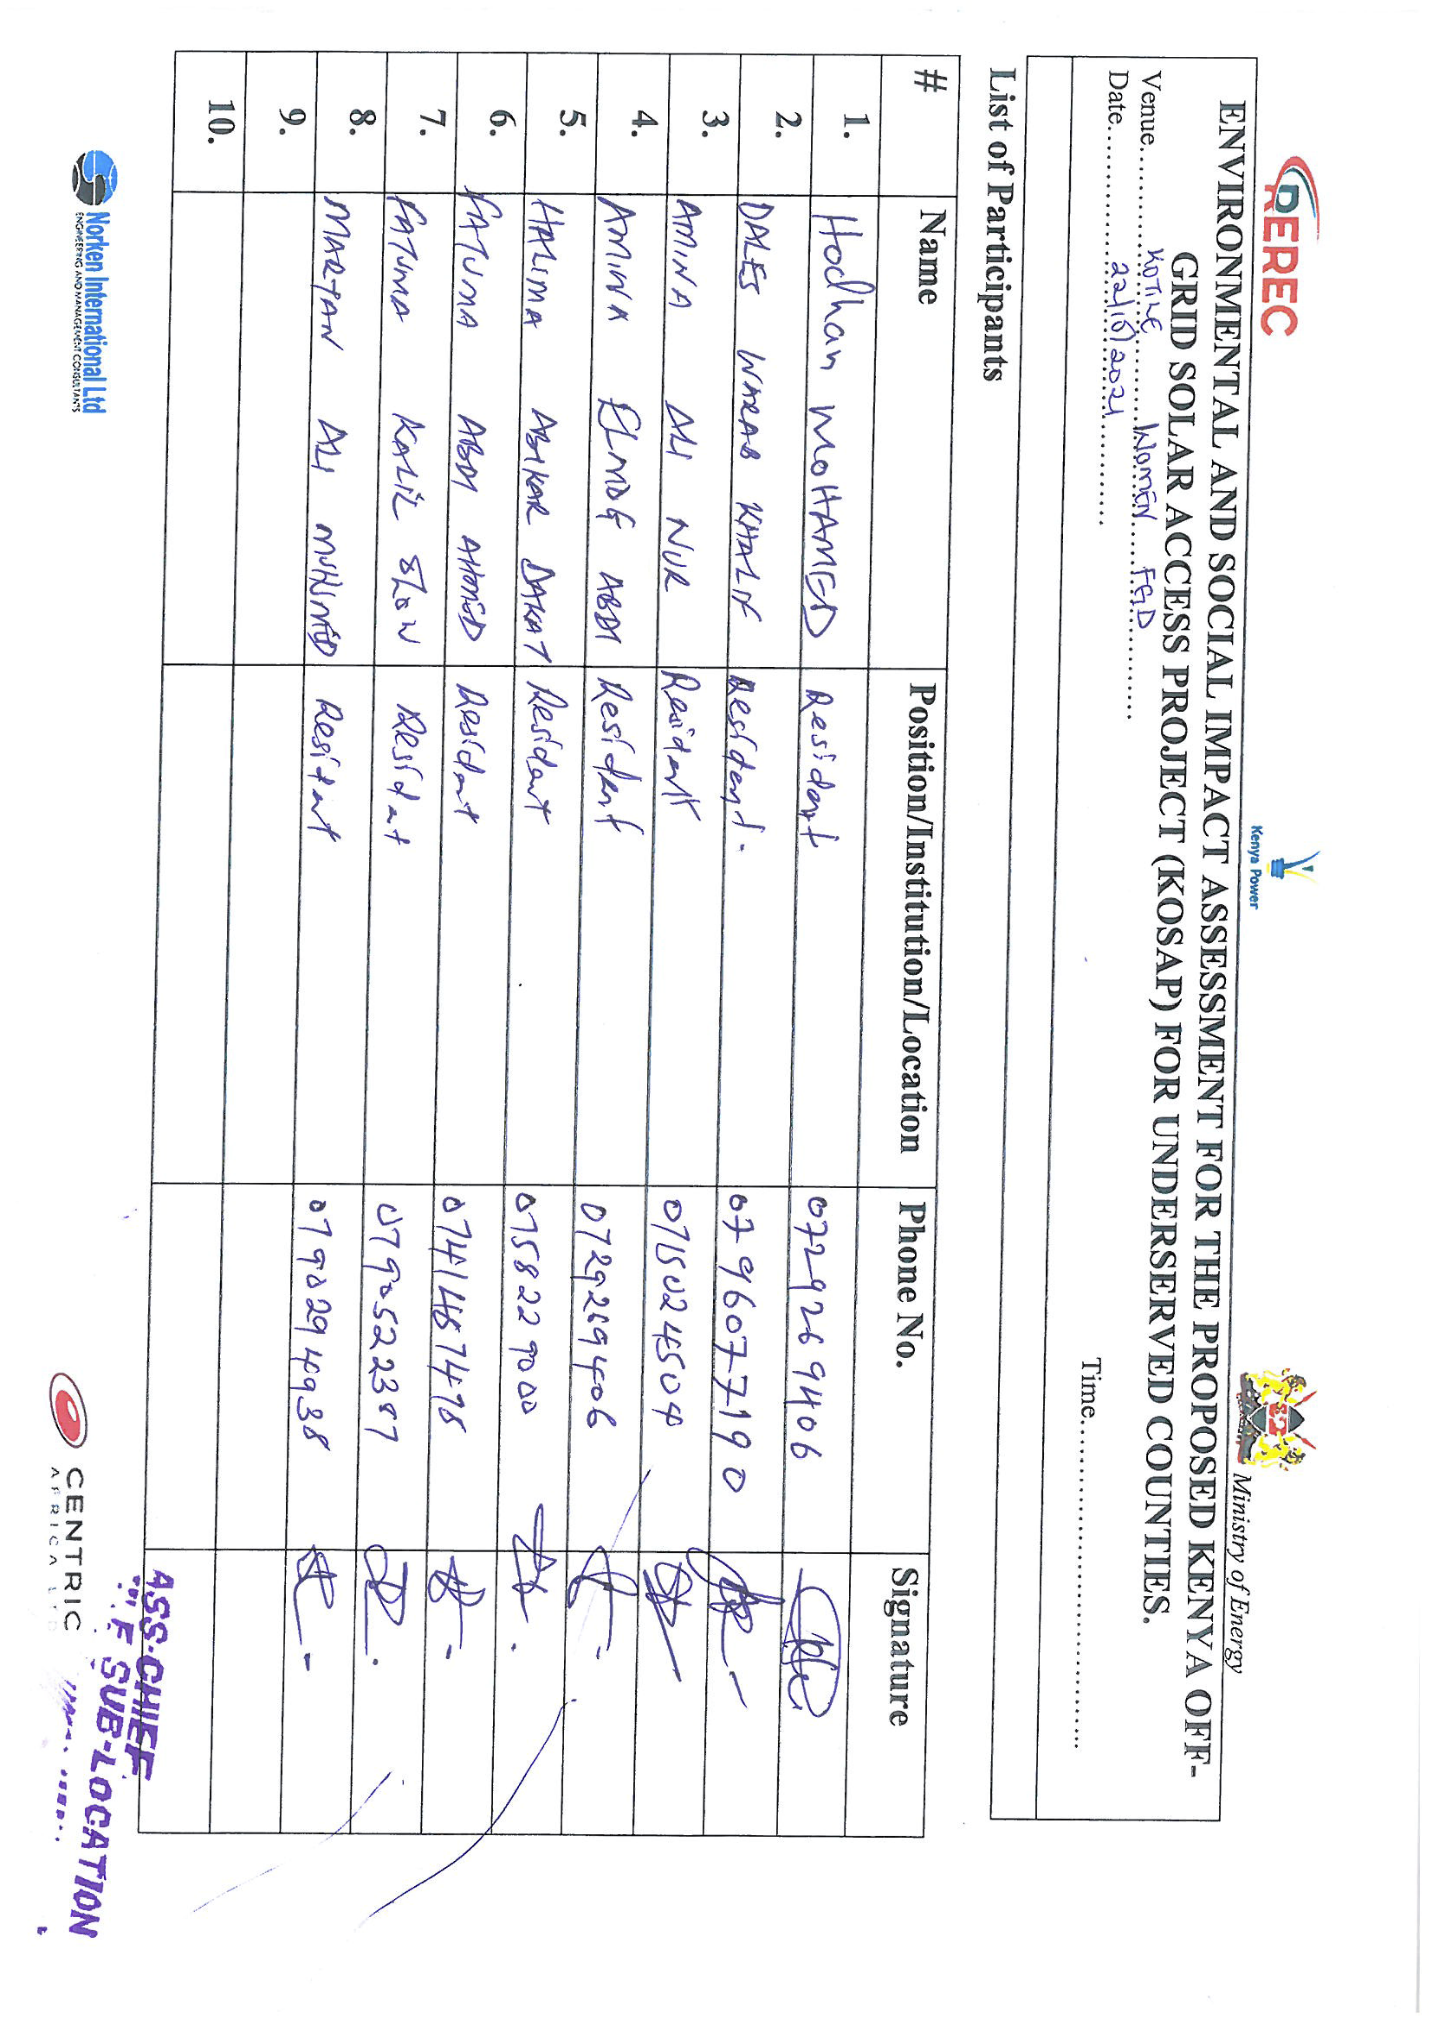 REREC
Kenya Power
Ministry of Energy
ENVIRONMENTAL AND SOCIAL IMPACT ASSESSMENT FOR THE PROPOSED KENYA OFF-
GRID SOLAR ACCESS PROJECT (KOSAP) FOR UNDERSERVED COUNTIES.
Venue.............KOTILE..........Women....FGD............
Date..................22/10/2021................ Time.....................................
List of Participants
# Name Position/Institution/Location Phone No. Signature
1. Hodhan MOHAMED Resident 0729269406
2. DALES WARAB KHALIF Resident. 0796077190
3. AMINA ALI NUR Resident 0715024504
4. AMINA ELMOG ABDI Resident 0729269406
5. HALIMA ABIKAR DAKAT Resident 0758229000
6. FATUMA ABDI AHMED Resident
7. FATUMA KALIL Resident 0790522387
8. MARYAN ALI MUHUMED Resident 0790294938
9.
10.
Norken International Ltd
ENGINEERING AND MANAGEMENT CONSULTANTS
CENTRIC
AFRICA LTD
ASS-CHIEF
SUB-LOCATION